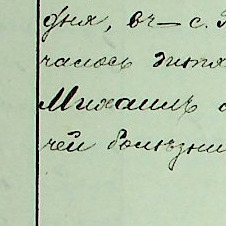 дня, въ — с.
чалось дитя
Михаилъ
чей болѣзни